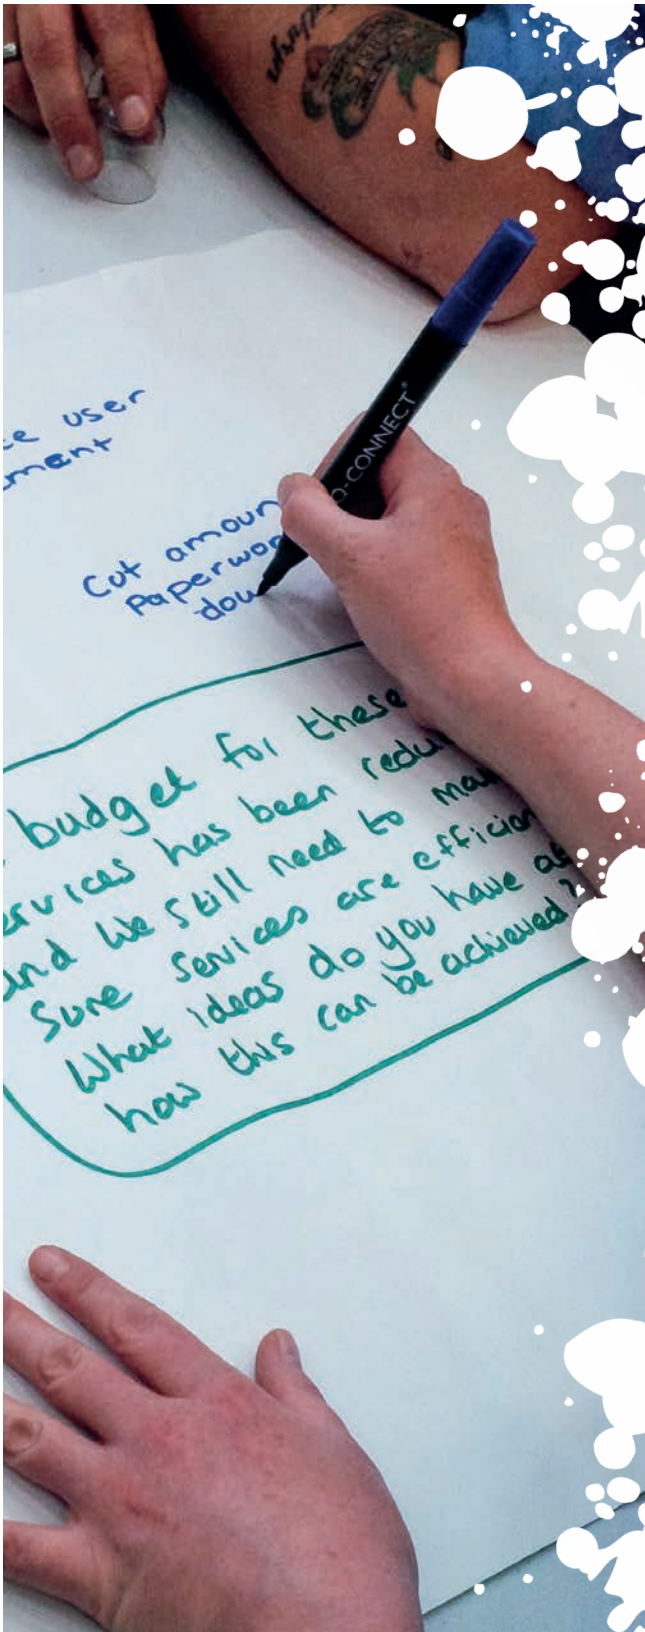 ce user
ment
Cut amoun
paperwor
dow
Q-CONNECT®
budget for these
ervices has been redu
and we still need to ma
sure services are efficien
What ideas do you have a
how this can be achieved?